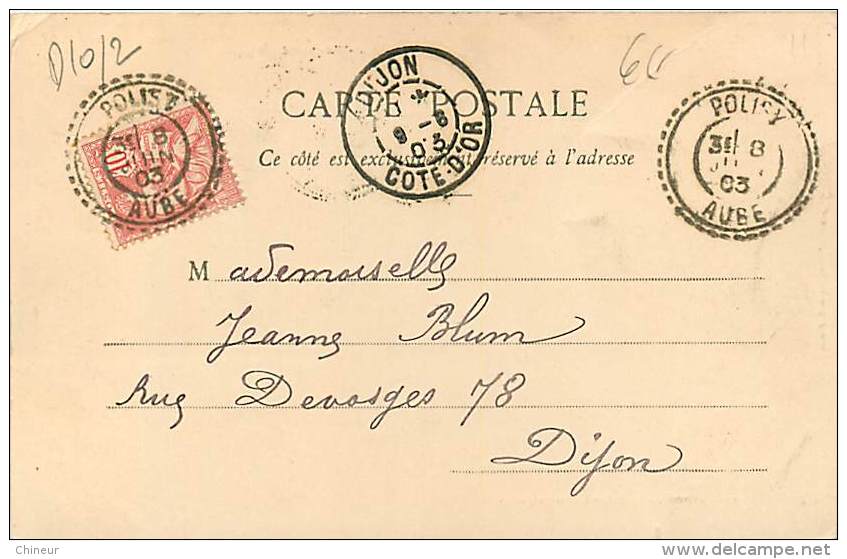 D10/2
60
POLISY
3E 8
JUIN
03
AUBE
10
DIJON
9 -6
03
COTE-D'OR
POLISY
3E 8
03
AUBE
CARTE POSTALE
Ce côté est exclusivement réservé à l'adresse
Mademoiselle
Jeanne Blum
Rue Devosges 78
Dijon
Chineur
www.delcampe.net